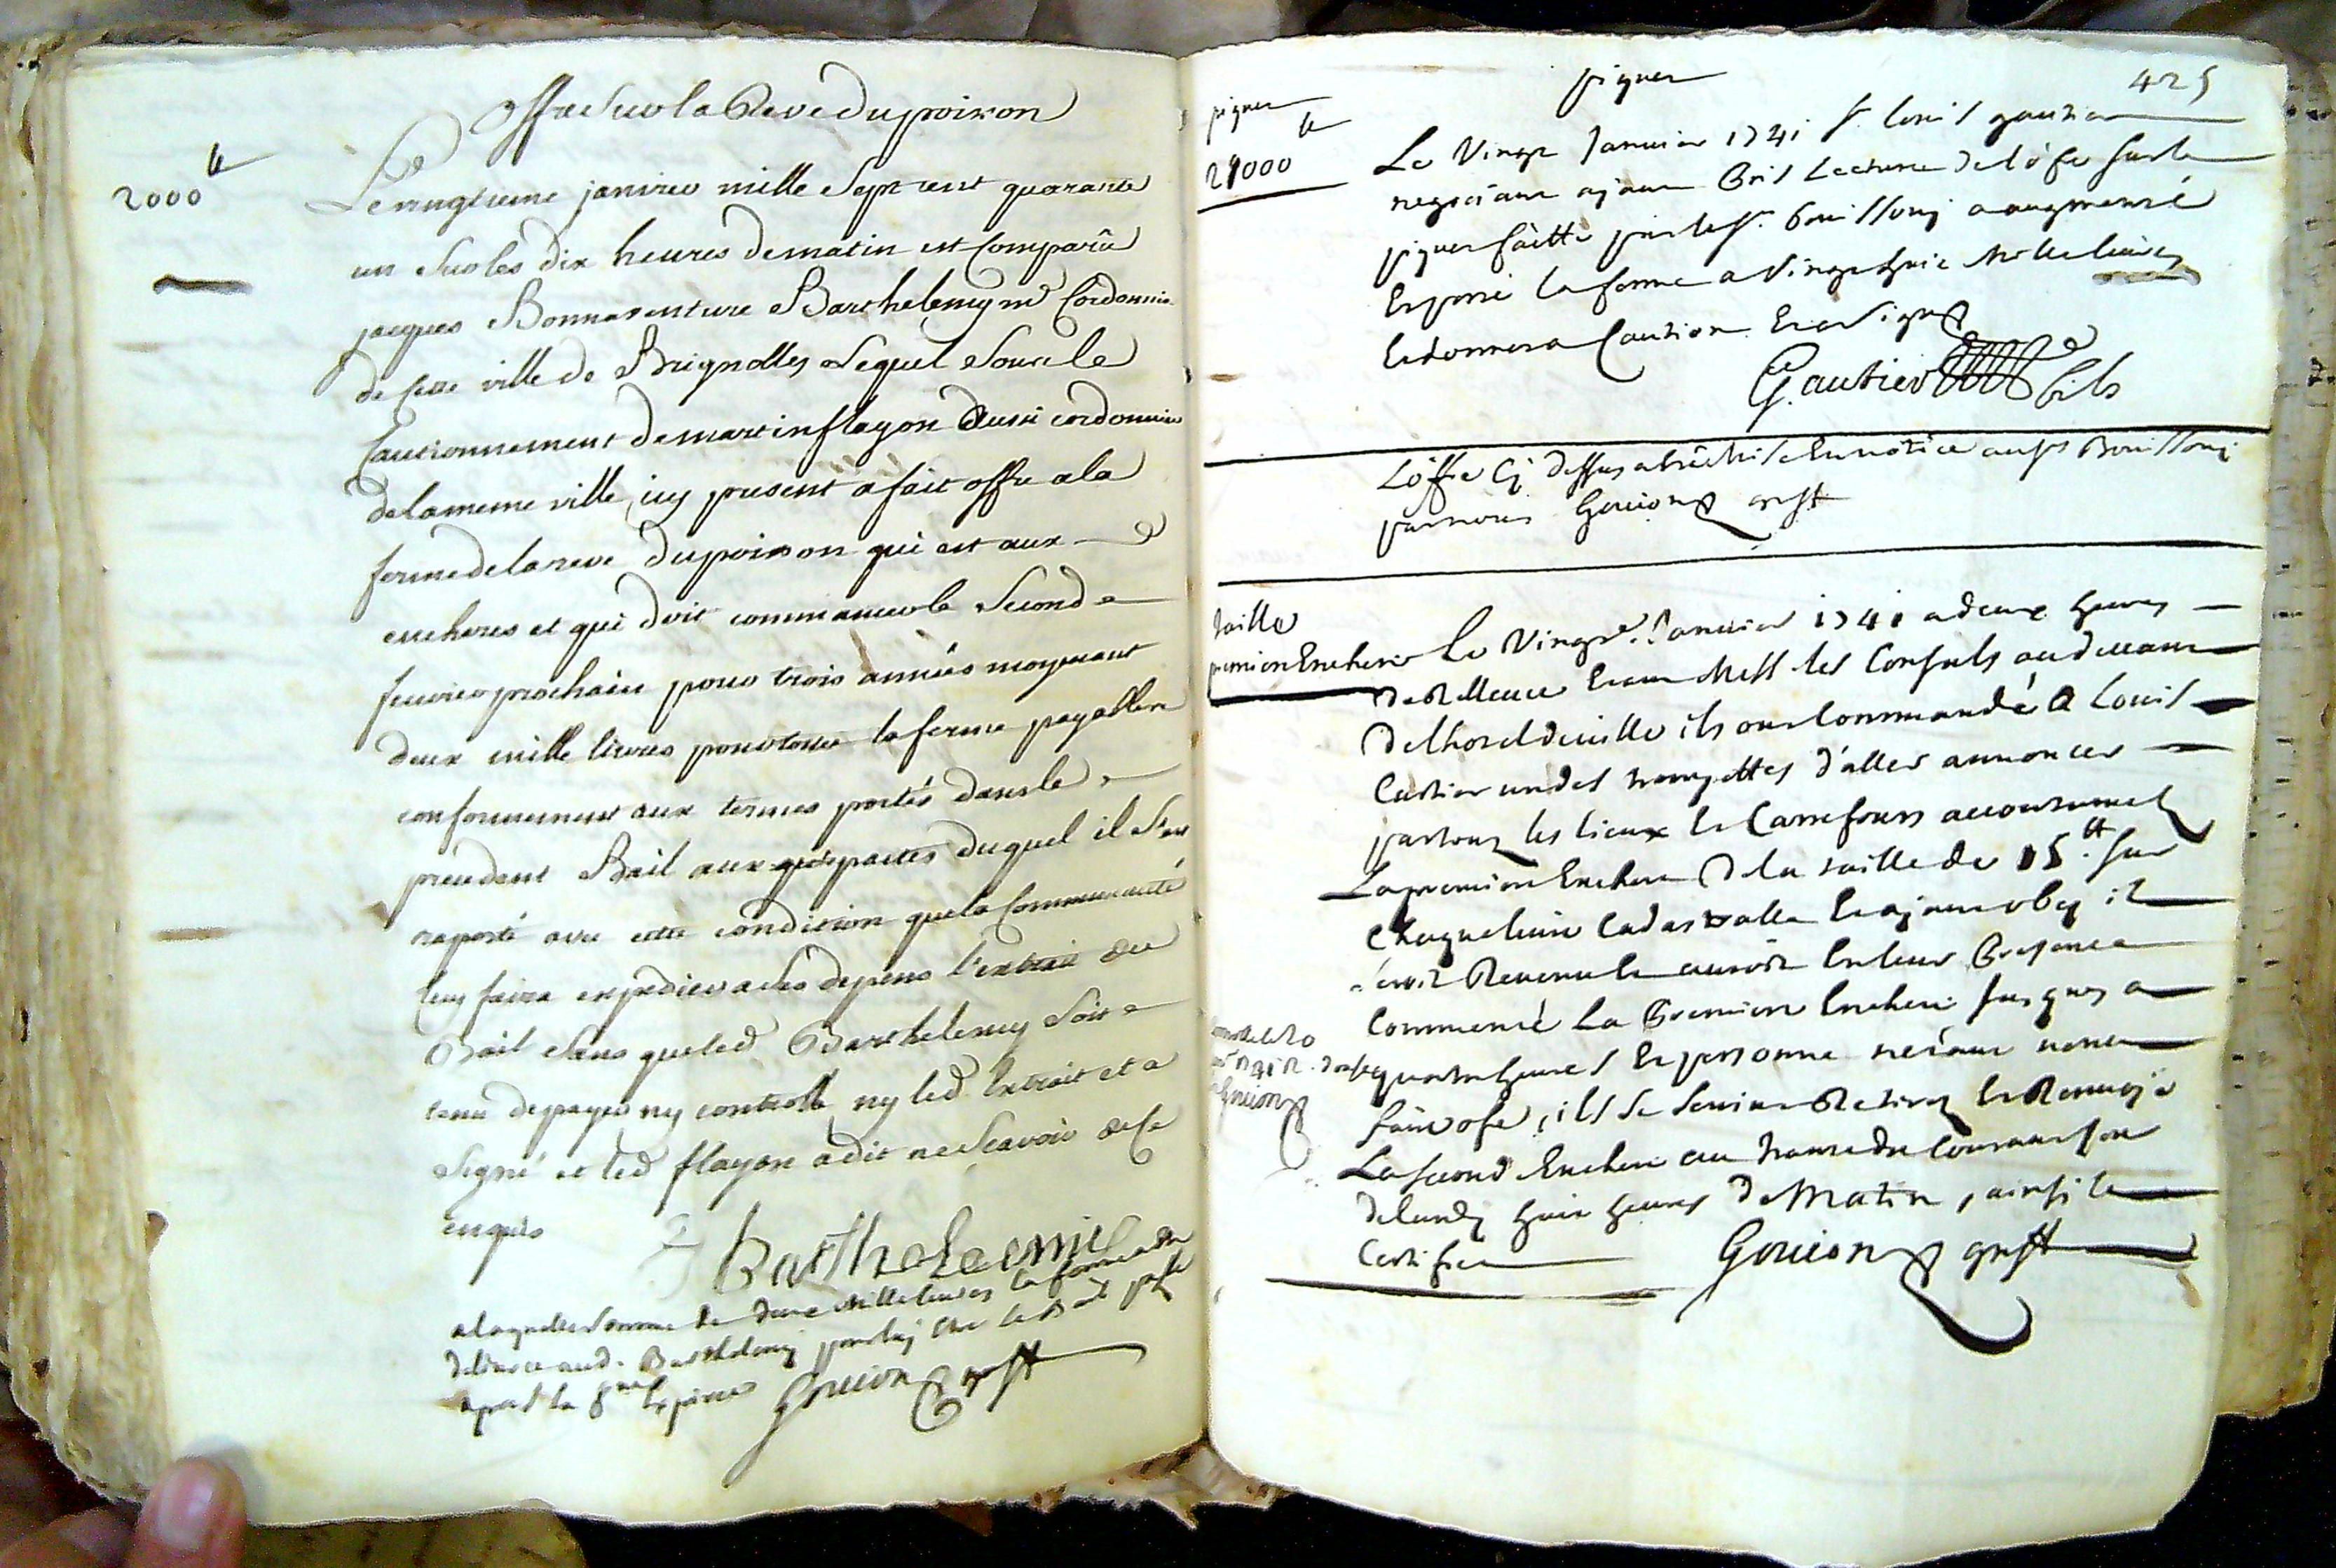 offre sur la Reve du poisson
2000 ₶
Le vingtieme janvier mille sept cent quarante
un sur les dix heures de matin est Comparû
jacques Bonnaventure Barthelemy me Cordonnier
de cette ville de Brignolles Lequel sous le
Cautionnement de martin flayon aussi cordonnier
de la meme ville, icy present a fait offre a la
ferme de la reve du poisson qui est aux
encheres et qui doit commancer le second
fevrier prochain pour trois années moyenant
deux mille livres pour toute la ferme payables
conformement aux termes portés dans le
precedent Bail aux pactes duquel il s'est
raporté avec cette condition que la Communauté
luy faira expedier a ses depens l'extrait du
Bail sans que led Barthelemy soit
tenu de payer ny controlle ny led Extrait et a
signé et led flayon a dit ne scavoir de ce
enquis
Barthelemie
a laquelle somme de deux mille livres la ferme a été
delivrée aud. Barthelemy pour luy etre le Bail passé
apres la 8ne Expirée Gouion greff
425
piquet
piquet
28000 ₶
Le Vingt Janvier 1741 Sr. louis gautier
negociant ayant Pris Lecture de l'ofre sur le
piquet faitte par le Sr. Bouillony a augmenté
Et porté la ferme a Vingt huit Mille livres
Et donnera Caution Et a signé
Gautier fils
L'offre Cy dessus a été notice au Sr Bouillony
par nous Gouion greff
taille
premiere Enchere
Le Vingte. Janvier 1741 a deux heures
de Relleuée Etant Mess les Consuls au devant
de lhotel de ville ils ont Commandé a Louis
Cartier un des trompettes d'aller annoncer
par tous les lieux Et Carrefours accoutumés
La premiere Enchere de la taille de 15 ₶. sur
Chaque livre Cadastralle Et ayant obey il
seroit Revenu Et auroit En leur Presence
Commencé La Premiere Enchere jusques a
quatre heures Et personne n'etant venu
faire ofre, ils se seroient Retirés Et Renvoyé
La second Enchere au trante du Courant jour
de lundy huit heures de Matin, ainsi le
Certifie Gouion greff
Gouion